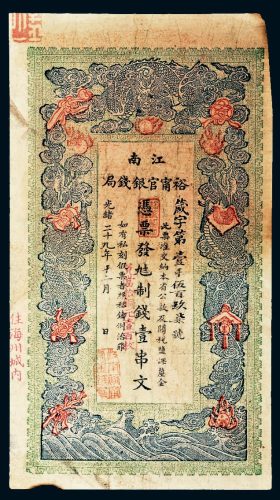 江南
裕甯官銀錢局
字第壹千伍百玖柒號
此票准交納本省公款及關稅鹽課釐金
憑票發制錢壹串文
如有私刻假票者照私鑄例治罪
光緒二十九年十月 日
海州城内